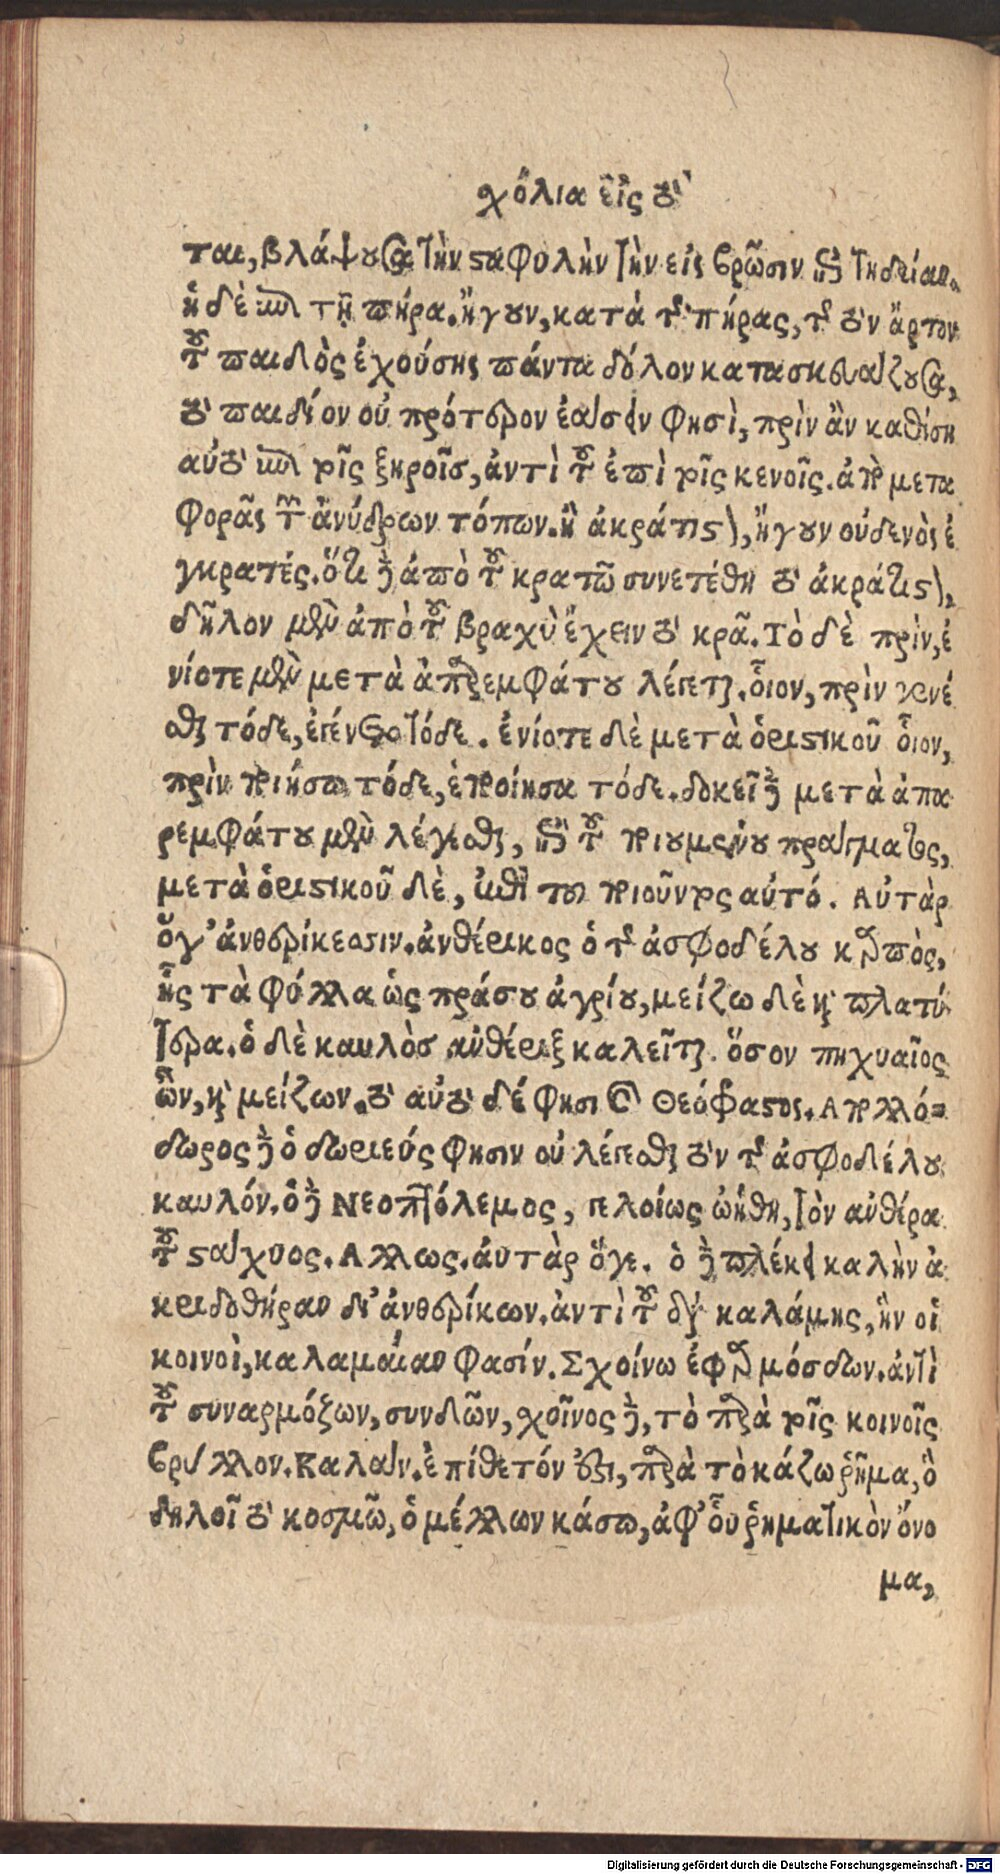 χόλια εἰς τὸ
ται, βλάψουσα τὴν σταφυλὴν τὴν εἰς βρῶσιν ἐπιτηδείαν.
ἡ δὲ ἐπὶ τῇ πήρᾳ. ἤγουν, κατὰ τῆς πήρας, τῆς τὸν ἄρτον
τοῦ παιδὸς ἐχούσης πάντα δόλον κατασκευάζουσα,
τὸ παιδίον οὐ πρότερον ἐάσειν φησὶ, πρὶν ἂν καθίση
αὐτὸ ἐπὶ τοῖς ξηροῖσ, ἀντὶ τοῦ ἐπὶ τοῖς κενοῖς. ἀπὸ μετα
φορᾶς τῶν ἀνύδρων τόπων. ἢ ἀκράτιστον, ἤγουν οὐδενὸς ἐ
γκρατές. ὅτι γὰρ ἀπὸ τοῦ κρατῶ συνετέθη τὸ ἀκράτιστον,
δῆλον μὲν ἀπὸ τοῦ βραχὺ ἔχειν τὸ κρᾶ. Τὸ δὲ πρὶν, ἐ
νίοτε μὲν μετὰ ἀπαρεμφάτου λέγεται. οἷον, πρὶν γενέ
σθαι τόδε, ἐγένετο τόδε. ἐνίοτε δὲ μετὰ ὁριστικοῦ οἷον,
πρὶν ποιήσω τόδε, ἐποίησα τόδε. δοκεῖ γὰρ μετὰ ἀπα
ρεμφάτου μὲν λέγεσθαι, ἐπὶ τοῦ ποιουμένου πράγματος,
μετὰ ὁριστικοῦ δὲ, ἐπὶ τοῦ ποιοῦντος αὐτό. Αὐτὰρ
ὅγ' ἀνθερίκεσσιν. ἀνθέρικος ὁ τῆς ἀσφοδέλου καρπὸς,
ἧς τὰ φύλλα ὡς πράσου ἀγρίου, μείζω δὲ καὶ πλατύ
τερα. ὁ δὲ καυλὸσ ἀνθέριξ καλεῖται. ὅσον πηχυαῖος
ὢν, καὶ μείζων. τὸ αὐτὸ δέ φησι καὶ Θεόφραστος. Απολλό-
δωρος γὰρ ὁ δωριεύς φησιν οὐ λέγεσθαι τὸν τῆς ἀσφοδέλου
καυλόν. ὁ γὰρ Νεοπτόλεμος, γελοίως ᾠήθη, τὸν ἀνθέρα
τοῦ στάχυος. Αλλως. ἀυτὰρ ὅγε. ὁ γὰρ πλέκει καλὴν ἀ
κριδοθήραν δι' ἀνθερίκων. ἀντὶ τοῦ διὰ καλάμης, ἣν οἱ
κοινοὶ, καλαμαίαν φασίν. Σχοίνω ἐφαρμόσδων. ἀντὶ
τοῦ συναρμόζων, συνδῶν, χοῖνος γὰρ, τὸ παρὰ τοῖς κοινοῖς
βρύλλον. Καλὰν. ἐπίθετόν ἐστι, παρὰ τὸ κάζω ῥῆμα, ὃ
δηλοῖ τὸ κοσμῶ, ὁ μέλλων κάσω, ἀφ' οὗ ῥηματικὸν ὄνο
μα,
Digitalisierung gefördert durch die Deutsche Forschungsgemeinschaft - DFG